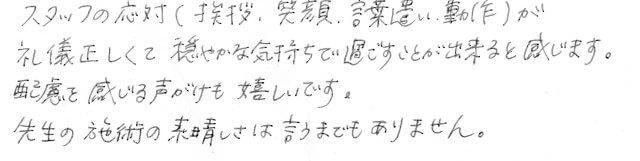 スタッフの応対(挨拶、笑顔、言葉遣い、動作)が
礼儀正しくて穏やかな気持ちで過ごすことが出来ると感じます。
配慮を感じる声がけも嬉しいです。
先生の施術の素晴しさは言うまでもありません。